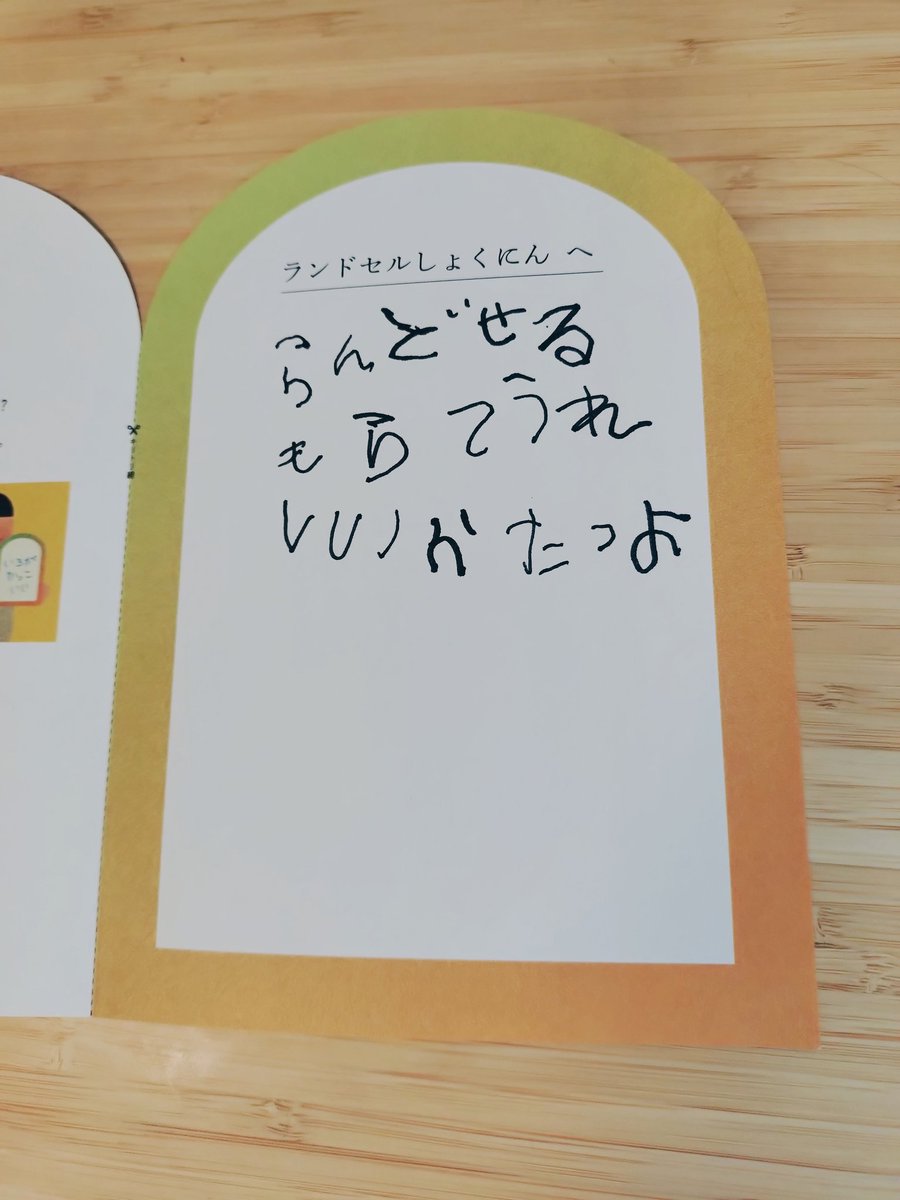 ランドセルしょくにん へ
らんどせる
もらてうれ
しいかたっよ
いろが
かっこ
いい